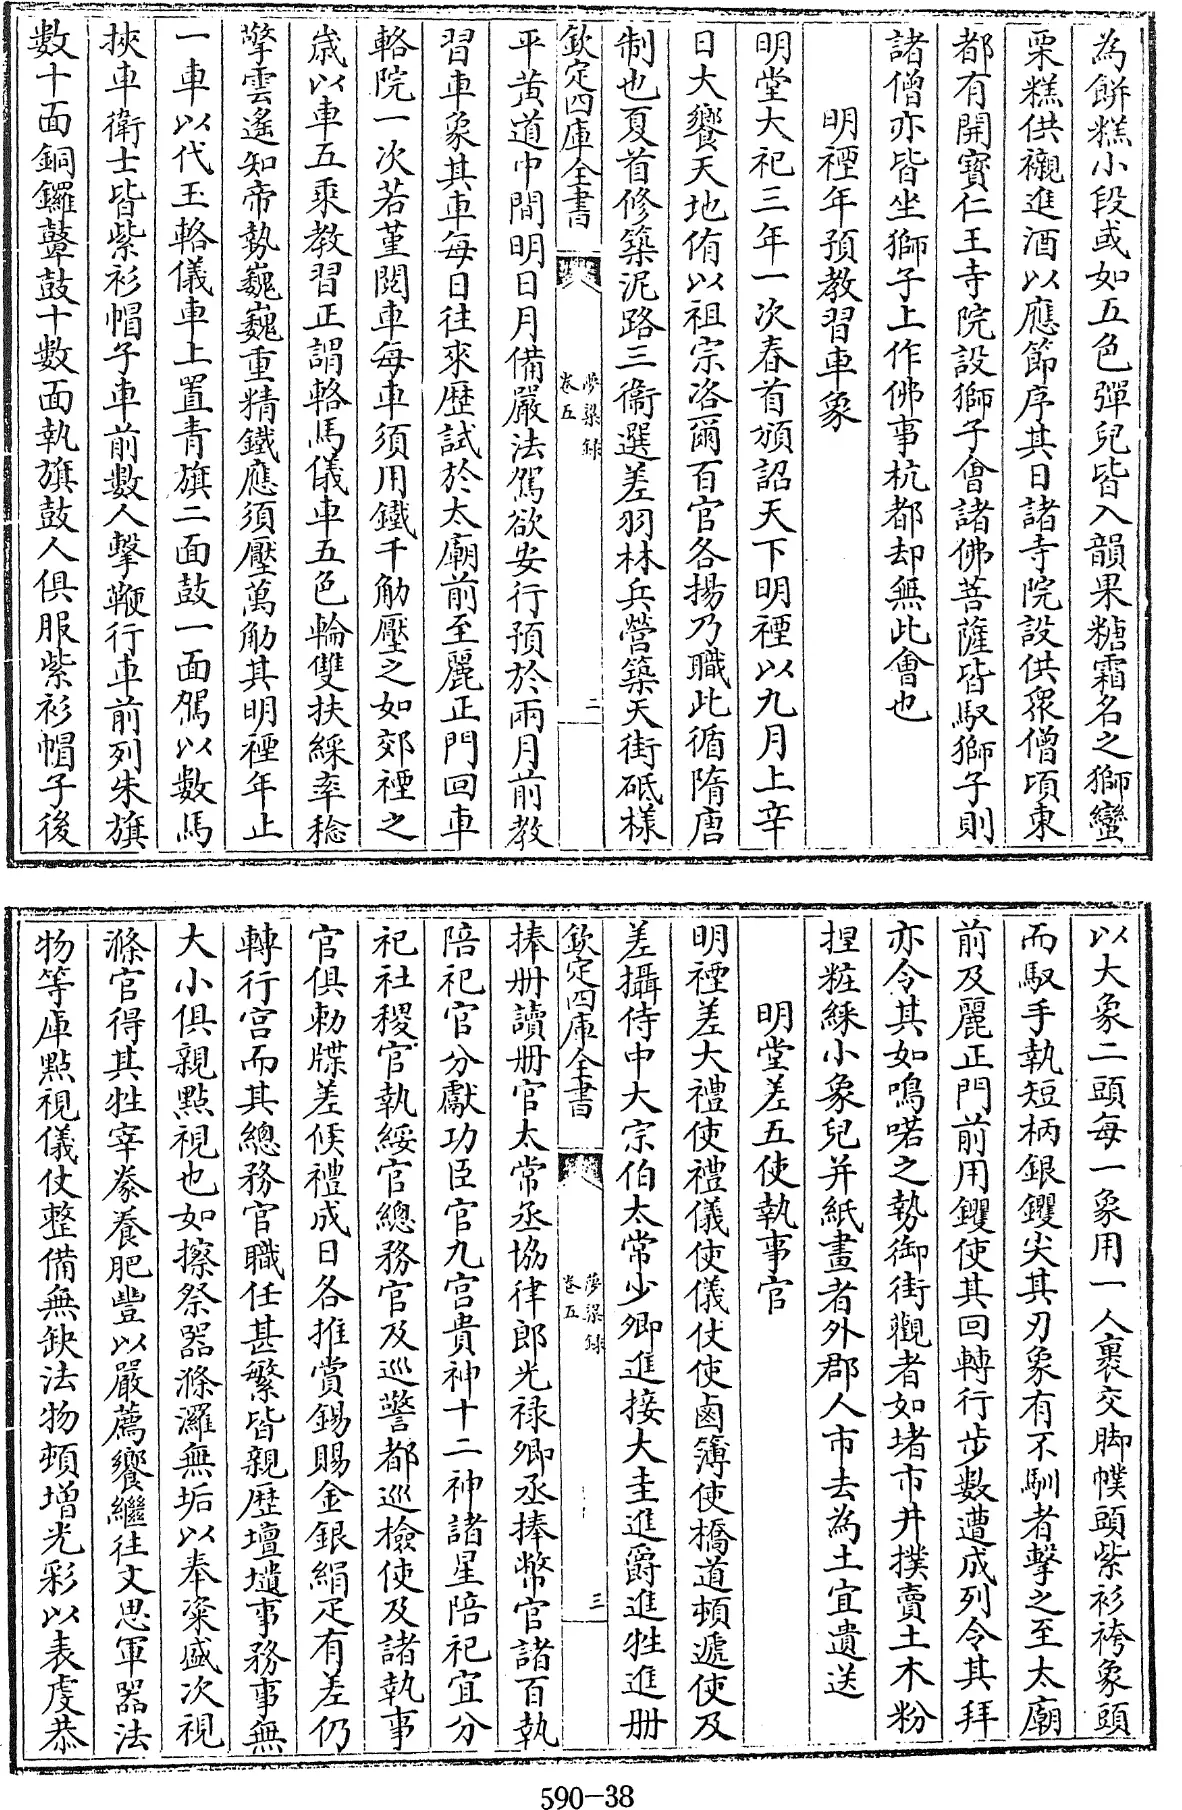 為餅糕小段或如五色彈兒皆入韻果糖霜名之獅蠻
栗糕供襯進酒以應節序其日諸寺院設供衆僧頃東
都有開寶仁王寺院設獅子會諸佛菩薩皆馭獅子則
諸僧亦皆坐獅子上作佛事杭都却無此會也
明禋年預教習車象
明堂大祀三年一次春首頒詔天下明禋以九月上辛
日大饗天地侑以祖宗洛爾百官各揚乃職此循隋唐
制也夏首修築泥路三衙選差羽林兵營築天街砥樣
欽定四庫全書
夢粱錄
卷五
二
平黄道中間明日月備嚴法駕欲安行預於兩月前教
習車象其車每日往來歴試於太廟前至麗正門回車
輅院一次若堇閱車每車須用鐵千觔壓之如郊禋之
歳以車五乘教習正謂輅馬儀車五色輪雙扶綵率稔
擎雲遙知帝勢巍巍重精鐵應須壓萬觔其明禋年止
一車以代玉輅儀車上置青旗二面鼓一面駕以數馬
挾車衛士皆紫衫帽子車前數人擊鞭行車前列朱旗
數十面銅鑼鼙鼓十數面執旗鼓人俱服紫衫帽子後
以大象二頭每一象用一人裹交脚幞頭紫衫袴象頭
而馭手執短柄銀钁尖其刃象有不馴者擊之至太廟
前及麗正門前用钁使其回轉行步數遭成列令其拜
亦令其如鳴喏之勢御街觀者如堵市井撲賣土木粉
捏粧綵小象兒并紙畫者外郡人市去為土宜遺送
明堂差五使執事官
明禋差大禮使禮儀使儀仗使鹵簿使橋道頓遞使及
差攝侍中大宗伯太常少卿進接大圭進爵進牲進册
欽定四庫全書
夢粱錄
卷五
三
捧册讀册官太常丞協律郎光禄卿丞捧幣官諸百執
陪祀官分獻功臣官九宫貴神十二神諸星陪祀宜分
祀社稷官執綏官總務官及巡警都巡檢使及諸執事
官俱勅牒差候禮成日各推賞錫賜金銀絹疋有差仍
轉行宫而其總務官職任甚繁皆親歴壇壝事務事無
大小俱親點視也如擦祭器滌濯無垢以奉粢盛次視
滌官得其牲宰豢養肥豐以嚴薦饗繼往文思軍器法
物等庫點視儀仗整備無缺法物頓增光彩以表虔恭
590-38